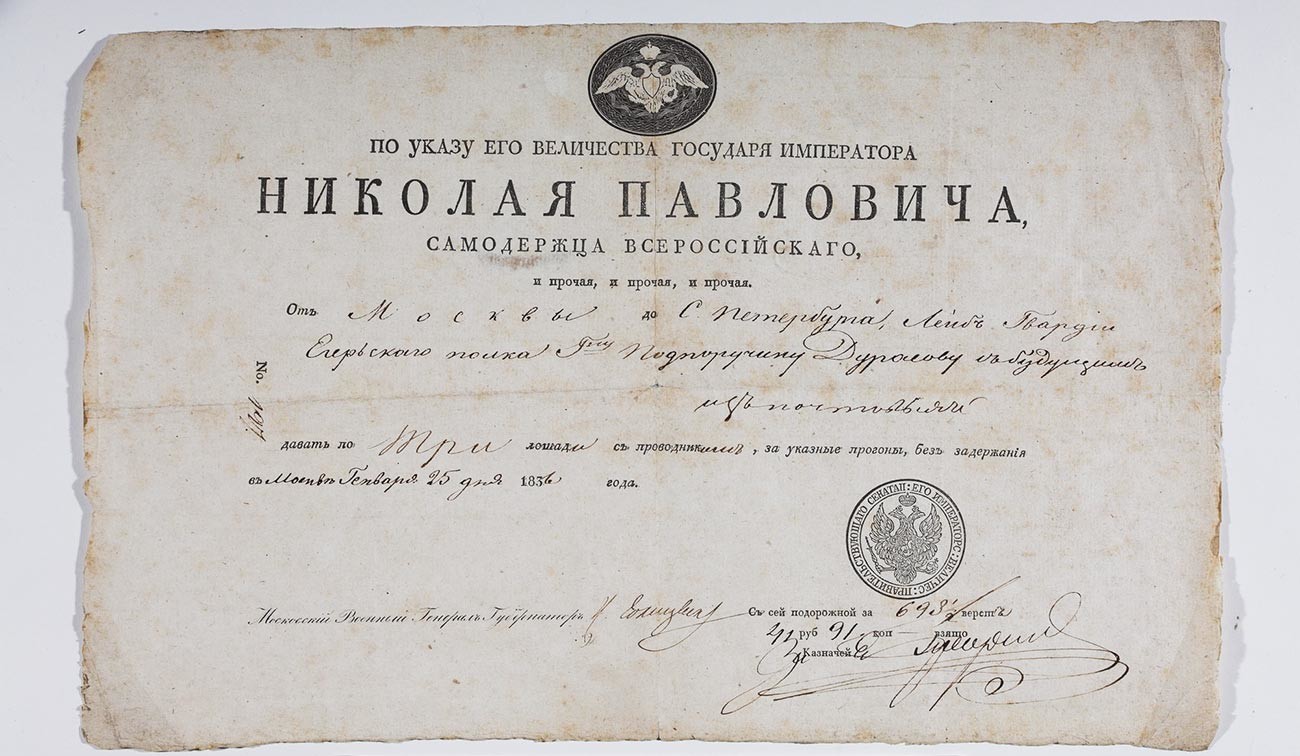 ПО УКАЗУ ЕГО ВЕЛИЧЕСТВА ГОСУДАРЯ ИМПЕРАТОРА
НИКОЛАЯ ПАВЛОВИЧА,
САМОДЕРЖЦА ВСЕРОССІЙСКАГО,
и прочая, и прочая, и прочая.
Отъ Москвы до С. Петербурга, Лейбъ Гвардіи
Егерьскаго полка Гну Подпоручику Дурасову съ будущимъ
No.
давать по Три лошади съ проводникомъ, за указные прогоны, безъ задержанія
въ Москвѣ Генваря 25 дня 1836 года.
ПРАВИТЕЛЬСТВУЮЩАГО СЕНАТА ЕГО ИМПЕРАТОРС: ВЕЛИЧЕС:
Московскій Военный Генералъ Губернаторъ
Съ сей подорожной за 693½ верстъ
41 руб 91 коп взято
Казначей